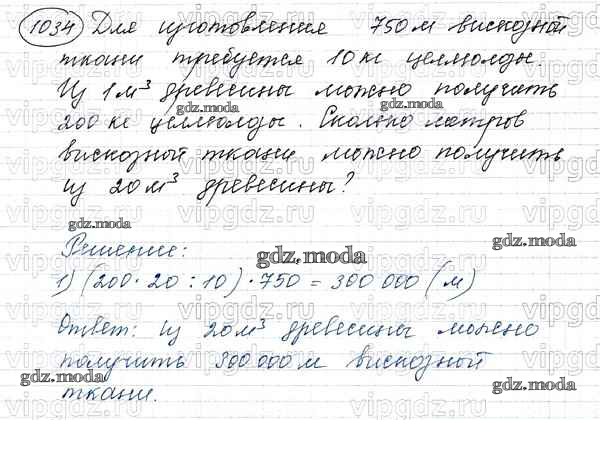 1034 Для изготовления 750 м вискозной
ткани требуется 10 кг целлюлозы.
Из 1 м³ древесины можно получить
200 кг целлюлозы. Сколько метров
вискозной ткани можно получить
из 20 м³ древесины?
Решение:
1) (200 · 20 : 10) · 750 = 300 000 (м)
Ответ: из 20 м³ древесины можно
получить 300 000 м вискозной
ткани.
gdz.moda
gdz.moda
gdz.moda
gdz.moda
gdz.moda
gdz.moda
gdz.moda
vipgdz.ru